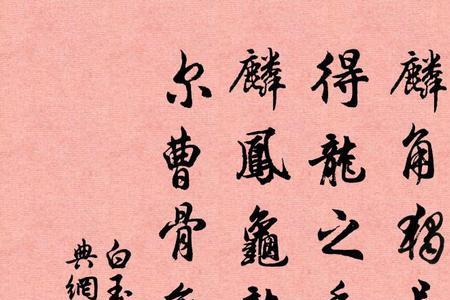 麟角獨
得龍之
麟鳳龜龍
尔曹骨
白玉
典網